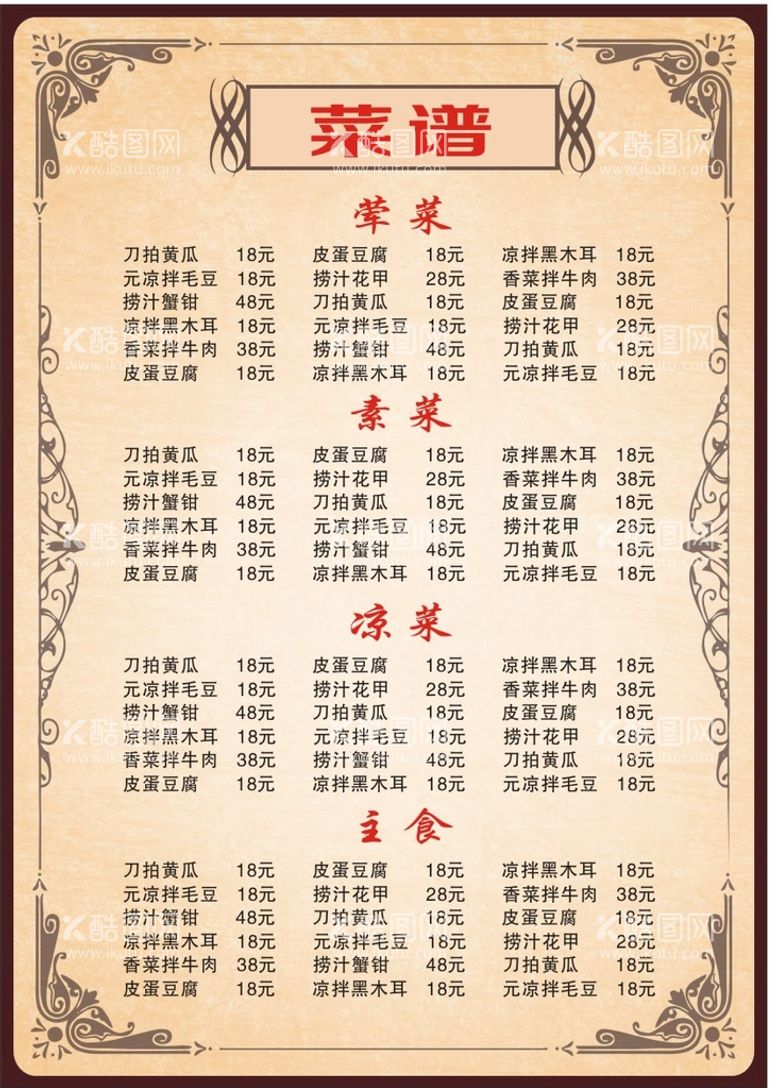 菜谱
荤菜
刀拍黄瓜 18元 皮蛋豆腐 18元 凉拌黑木耳 18元
元凉拌毛豆 18元 捞汁花甲 28元 香菜拌牛肉 38元
捞汁蟹钳 48元 刀拍黄瓜 18元 皮蛋豆腐 18元
凉拌黑木耳 18元 元凉拌毛豆 18元 捞汁花甲 28元
香菜拌牛肉 38元 捞汁蟹钳 48元 刀拍黄瓜 18元
皮蛋豆腐 18元 凉拌黑木耳 18元 元凉拌毛豆 18元
素菜
刀拍黄瓜 18元 皮蛋豆腐 18元 凉拌黑木耳 18元
元凉拌毛豆 18元 捞汁花甲 28元 香菜拌牛肉 38元
捞汁蟹钳 48元 刀拍黄瓜 18元 皮蛋豆腐 18元
凉拌黑木耳 18元 元凉拌毛豆 18元 捞汁花甲 28元
香菜拌牛肉 38元 捞汁蟹钳 48元 刀拍黄瓜 18元
皮蛋豆腐 18元 凉拌黑木耳 18元 元凉拌毛豆 18元
凉菜
刀拍黄瓜 18元 皮蛋豆腐 18元 凉拌黑木耳 18元
元凉拌毛豆 18元 捞汁花甲 28元 香菜拌牛肉 38元
捞汁蟹钳 48元 刀拍黄瓜 18元 皮蛋豆腐 18元
凉拌黑木耳 18元 元凉拌毛豆 18元 捞汁花甲 28元
香菜拌牛肉 38元 捞汁蟹钳 48元 刀拍黄瓜 18元
皮蛋豆腐 18元 凉拌黑木耳 18元 元凉拌毛豆 18元
主食
刀拍黄瓜 18元 皮蛋豆腐 18元 凉拌黑木耳 18元
元凉拌毛豆 18元 捞汁花甲 28元 香菜拌牛肉 38元
捞汁蟹钳 48元 刀拍黄瓜 18元 皮蛋豆腐 18元
凉拌黑木耳 18元 元凉拌毛豆 18元 捞汁花甲 28元
香菜拌牛肉 38元 捞汁蟹钳 48元 刀拍黄瓜 18元
皮蛋豆腐 18元 凉拌黑木耳 18元 元凉拌毛豆 18元
酷图网
www.ikutu.com